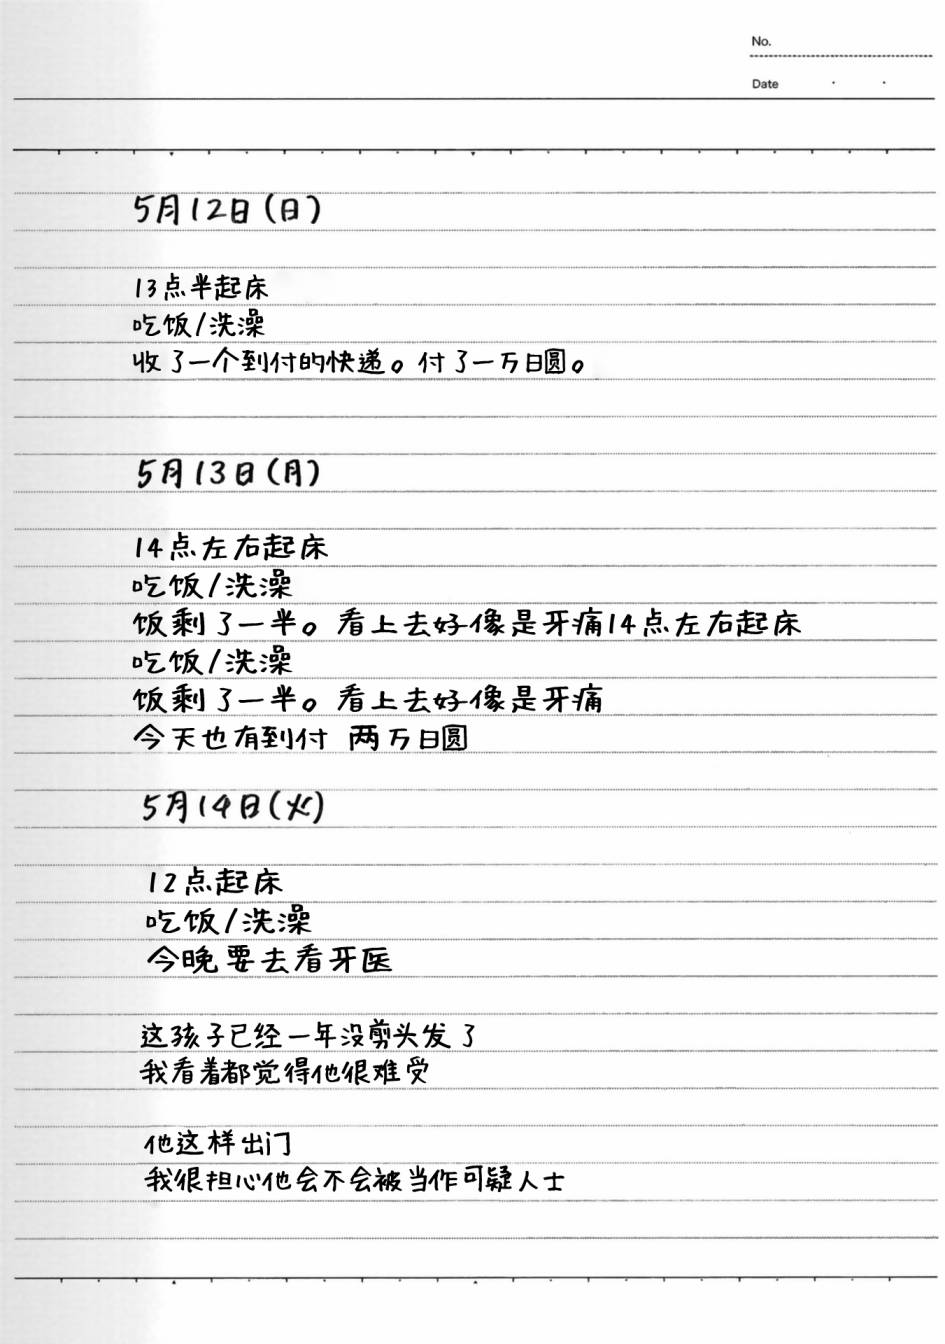 No.
Date
5月12日(日)
13点半起床
吃饭/洗澡
收了一个到付的快递。付了一万日圆。
5月13日(月)
14点左右起床
吃饭/洗澡
饭剩了一半。看上去好像是牙痛14点左右起床
吃饭/洗澡
饭剩了一半。看上去好像是牙痛
今天也有到付 两万日圆
5月14日(火)
12点起床
吃饭/洗澡
今晚要去看牙医
这孩子已经一年没剪头发了
我看着都觉得他很难受
他这样出门
我很担心他会不会被当作可疑人士